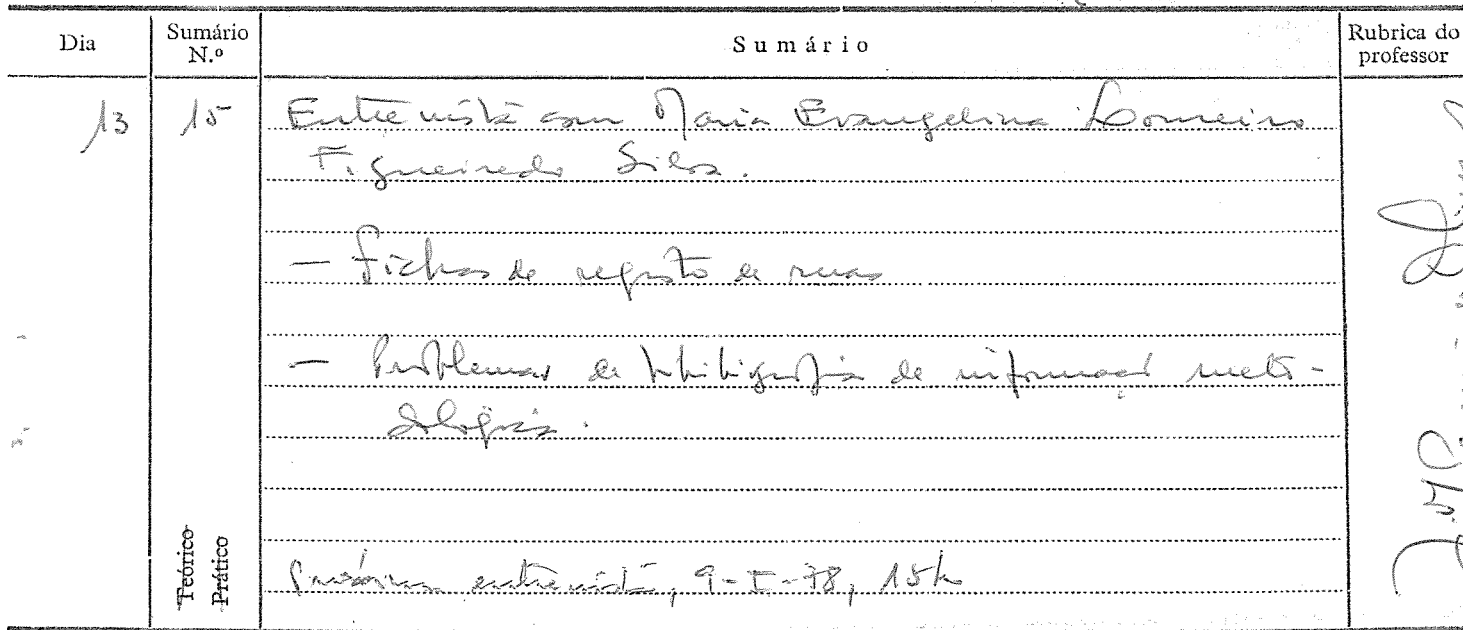 Dia
Sumário
N.º
Sumário
Rubrica do
professor
13
15
Entrevista com Maria Evangelina Loureiro
Figueiredo Silva.
– Fichas de registo de ruas
– Problemas de bibliografia de informação meto-
dológica.
Teórico
Prático
Próxima entrevista, 9-I-78, 15h